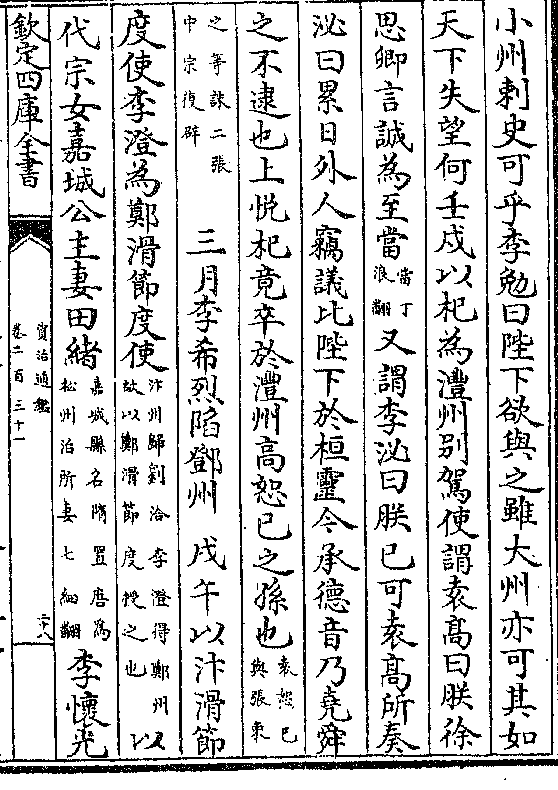 小州刺史可乎李勉曰陛下欲與之雖大州亦可其如
天下失望何壬戌以杞為澧州別駕使謂袁高曰朕徐
思卿言誠為至當當丁浪翻又謂李泌曰朕已可袁高所奏
泌曰累日外人竊議比陛下於桓靈今承德音乃堯舜
之不逮也上悅杞竟卒於澧州高恕已之孫也袁恕已與張柬
之等誅二張中宗復辟　三月李希烈陷鄧州　戊午以汴滑節
度使李澄為鄭滑節度使汴州歸劉洽李澄得鄭州故以鄭滑節度授之也　以
代宗女嘉城公主妻田緒嘉城縣名隋置唐為松州治所妻七細翻　李懷光
欽定四庫全書
資治通鑑
卷二百三十一
六